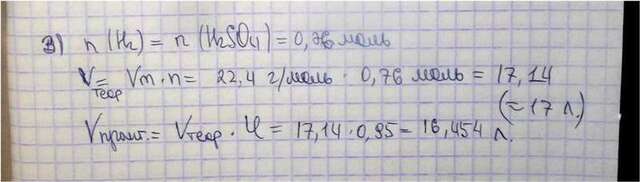 3) n (H₂) = n (H₂SO₄) = 0,76 моль
V теор = Vm · n = 22,4 г/моль · 0,76 моль = 17,14
(= 17 л.)
Vпракт. = Vтеор · Ч = 17,14 · 0,95 = 16,454 л.